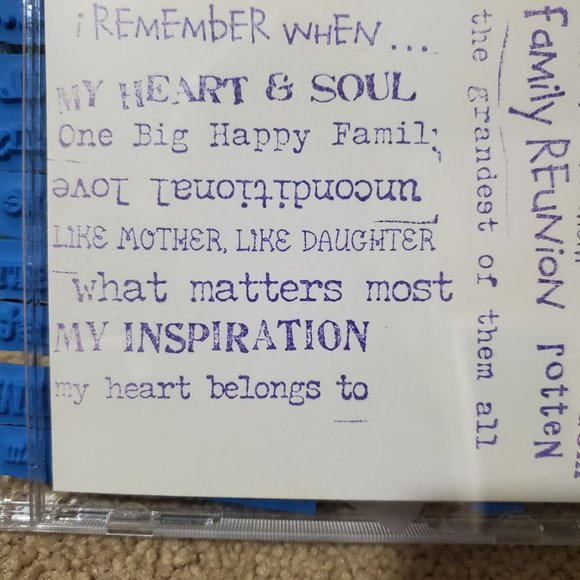 i REMEMbER wHEN...
MY HEART & SOUL
One Big Happy Famil
unconditional love
LIKE MOTHER, LIKE DAUGHTER
what matters most
MY INSPIRATION
my heart belongs to
the grandest of them all
family REUNiON
rotteN